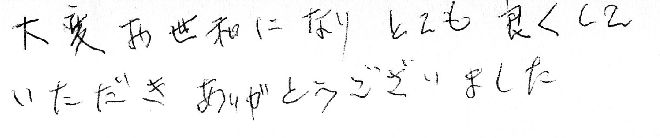 大変お世和になりとても良くして
いただきありがとうございました